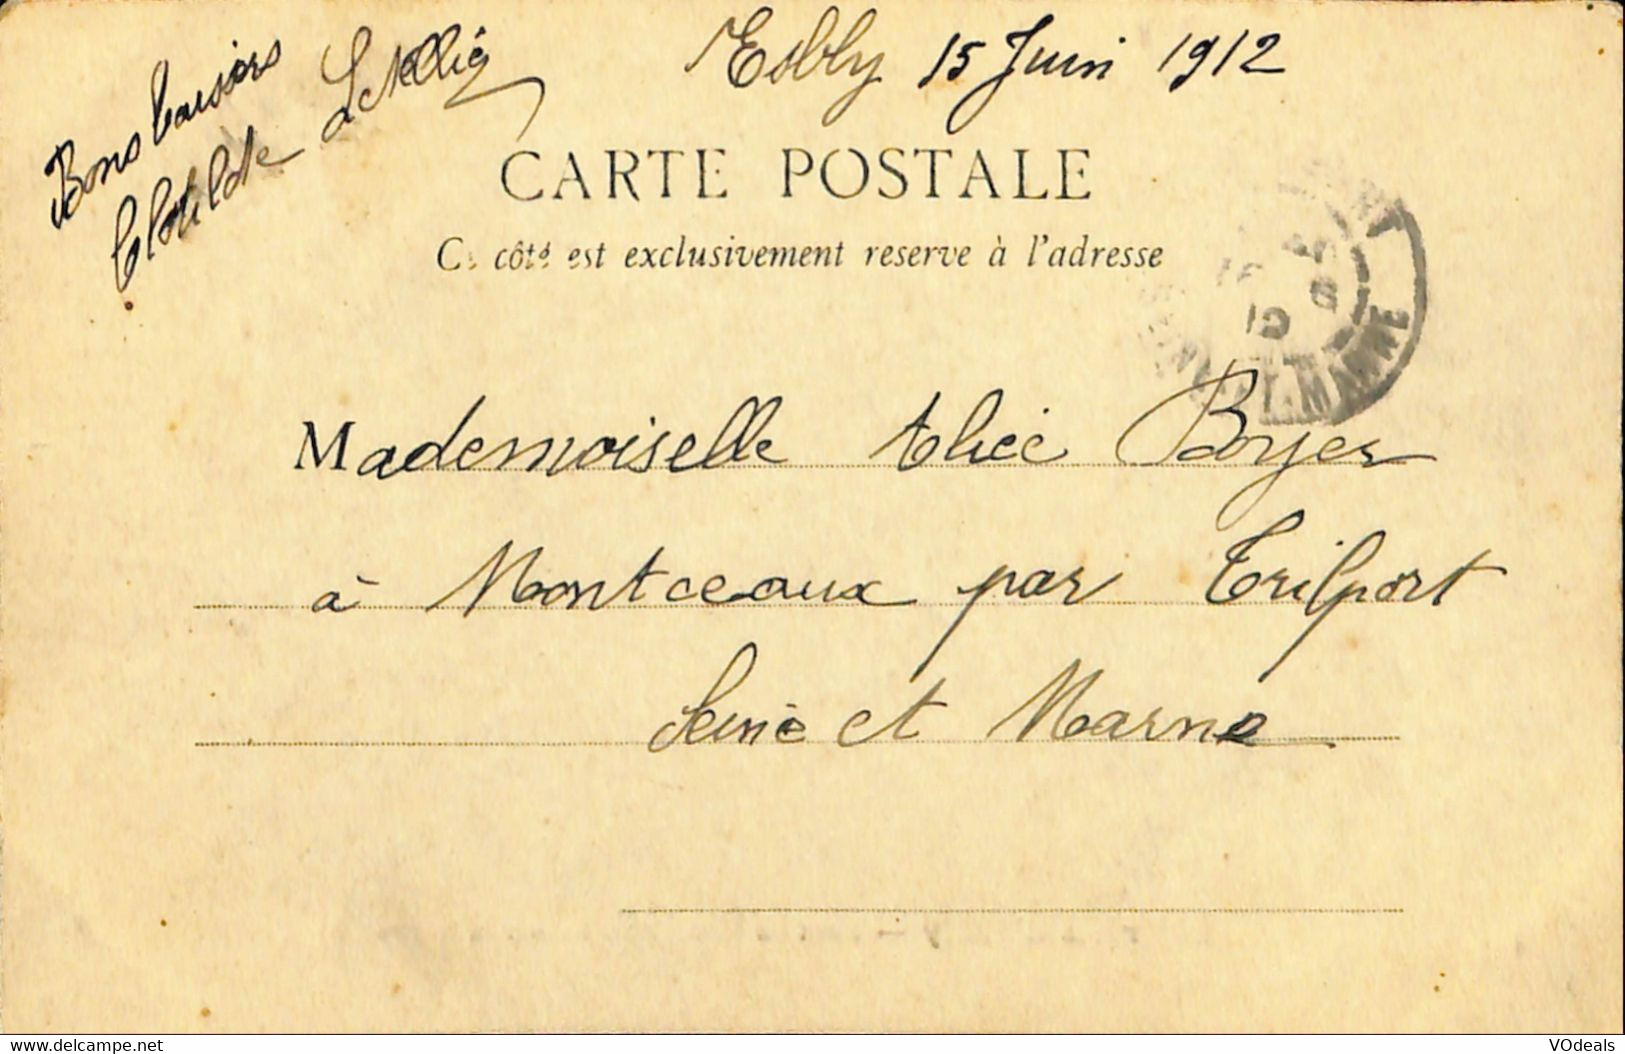 Bons baisers
Clotilde
Esbly 15 Juin 1912
CARTE POSTALE
côté est exclusivement reserve à l'adresse
Mademoiselle Alice Boyer
à Montceaux par Trilport
Seine et Marne
MARNE
delcampe.net
VOdeals